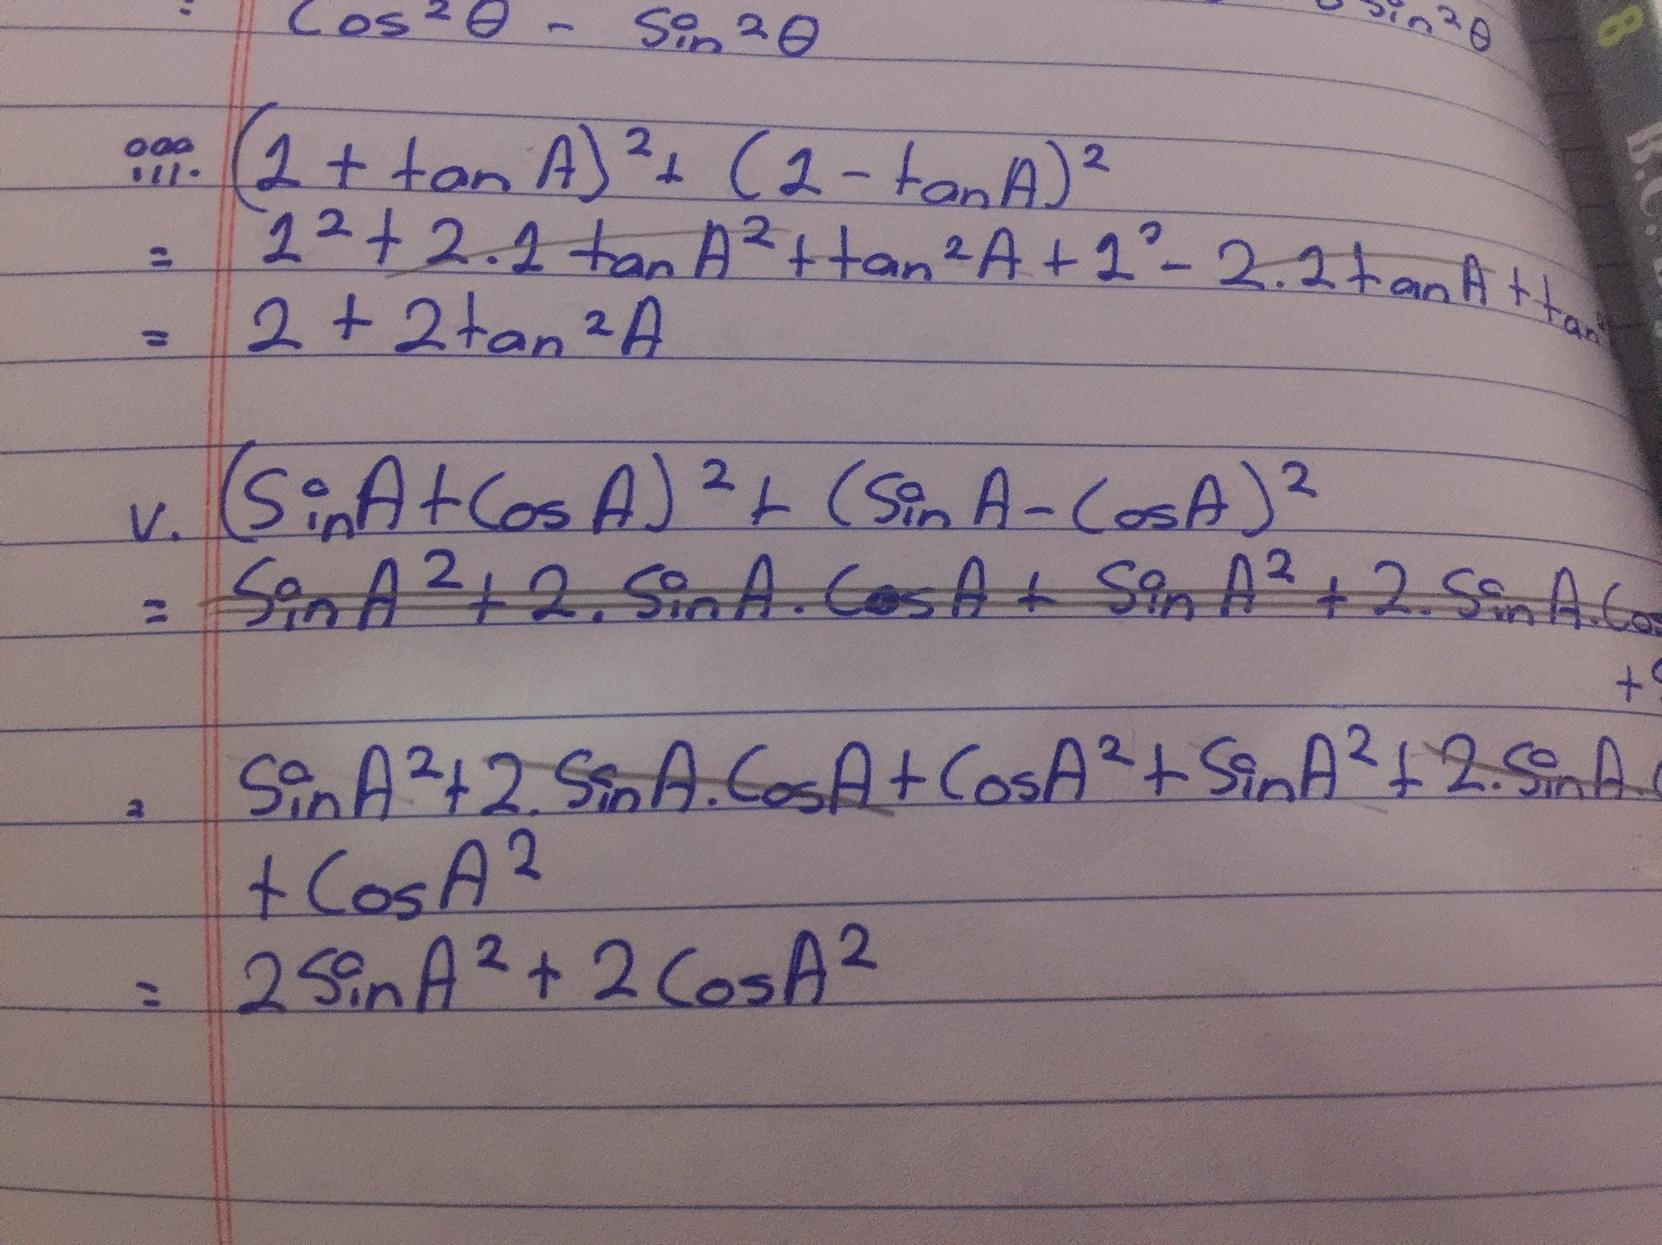 Cos²θ - Sin²θ
Sin²θ
8
B.C.
iii. (1 + tan A)² + (1 - tan A)²
= 1² + 2.1 tan A² + tan²A + 1² - 2.1 tan A + tan²
= 2 + 2 tan²A
v. (Sin A + Cos A)² + (Sin A - Cos A)²
= Sin A² + 2. Sin A. Cos A + Sin A² + 2. Sin A. Cos
+
= Sin A² + 2. Sin A. Cos A + Cos A² + Sin A² + 2. Sin A.
+ Cos A²
= 2 Sin A² + 2 Cos A²